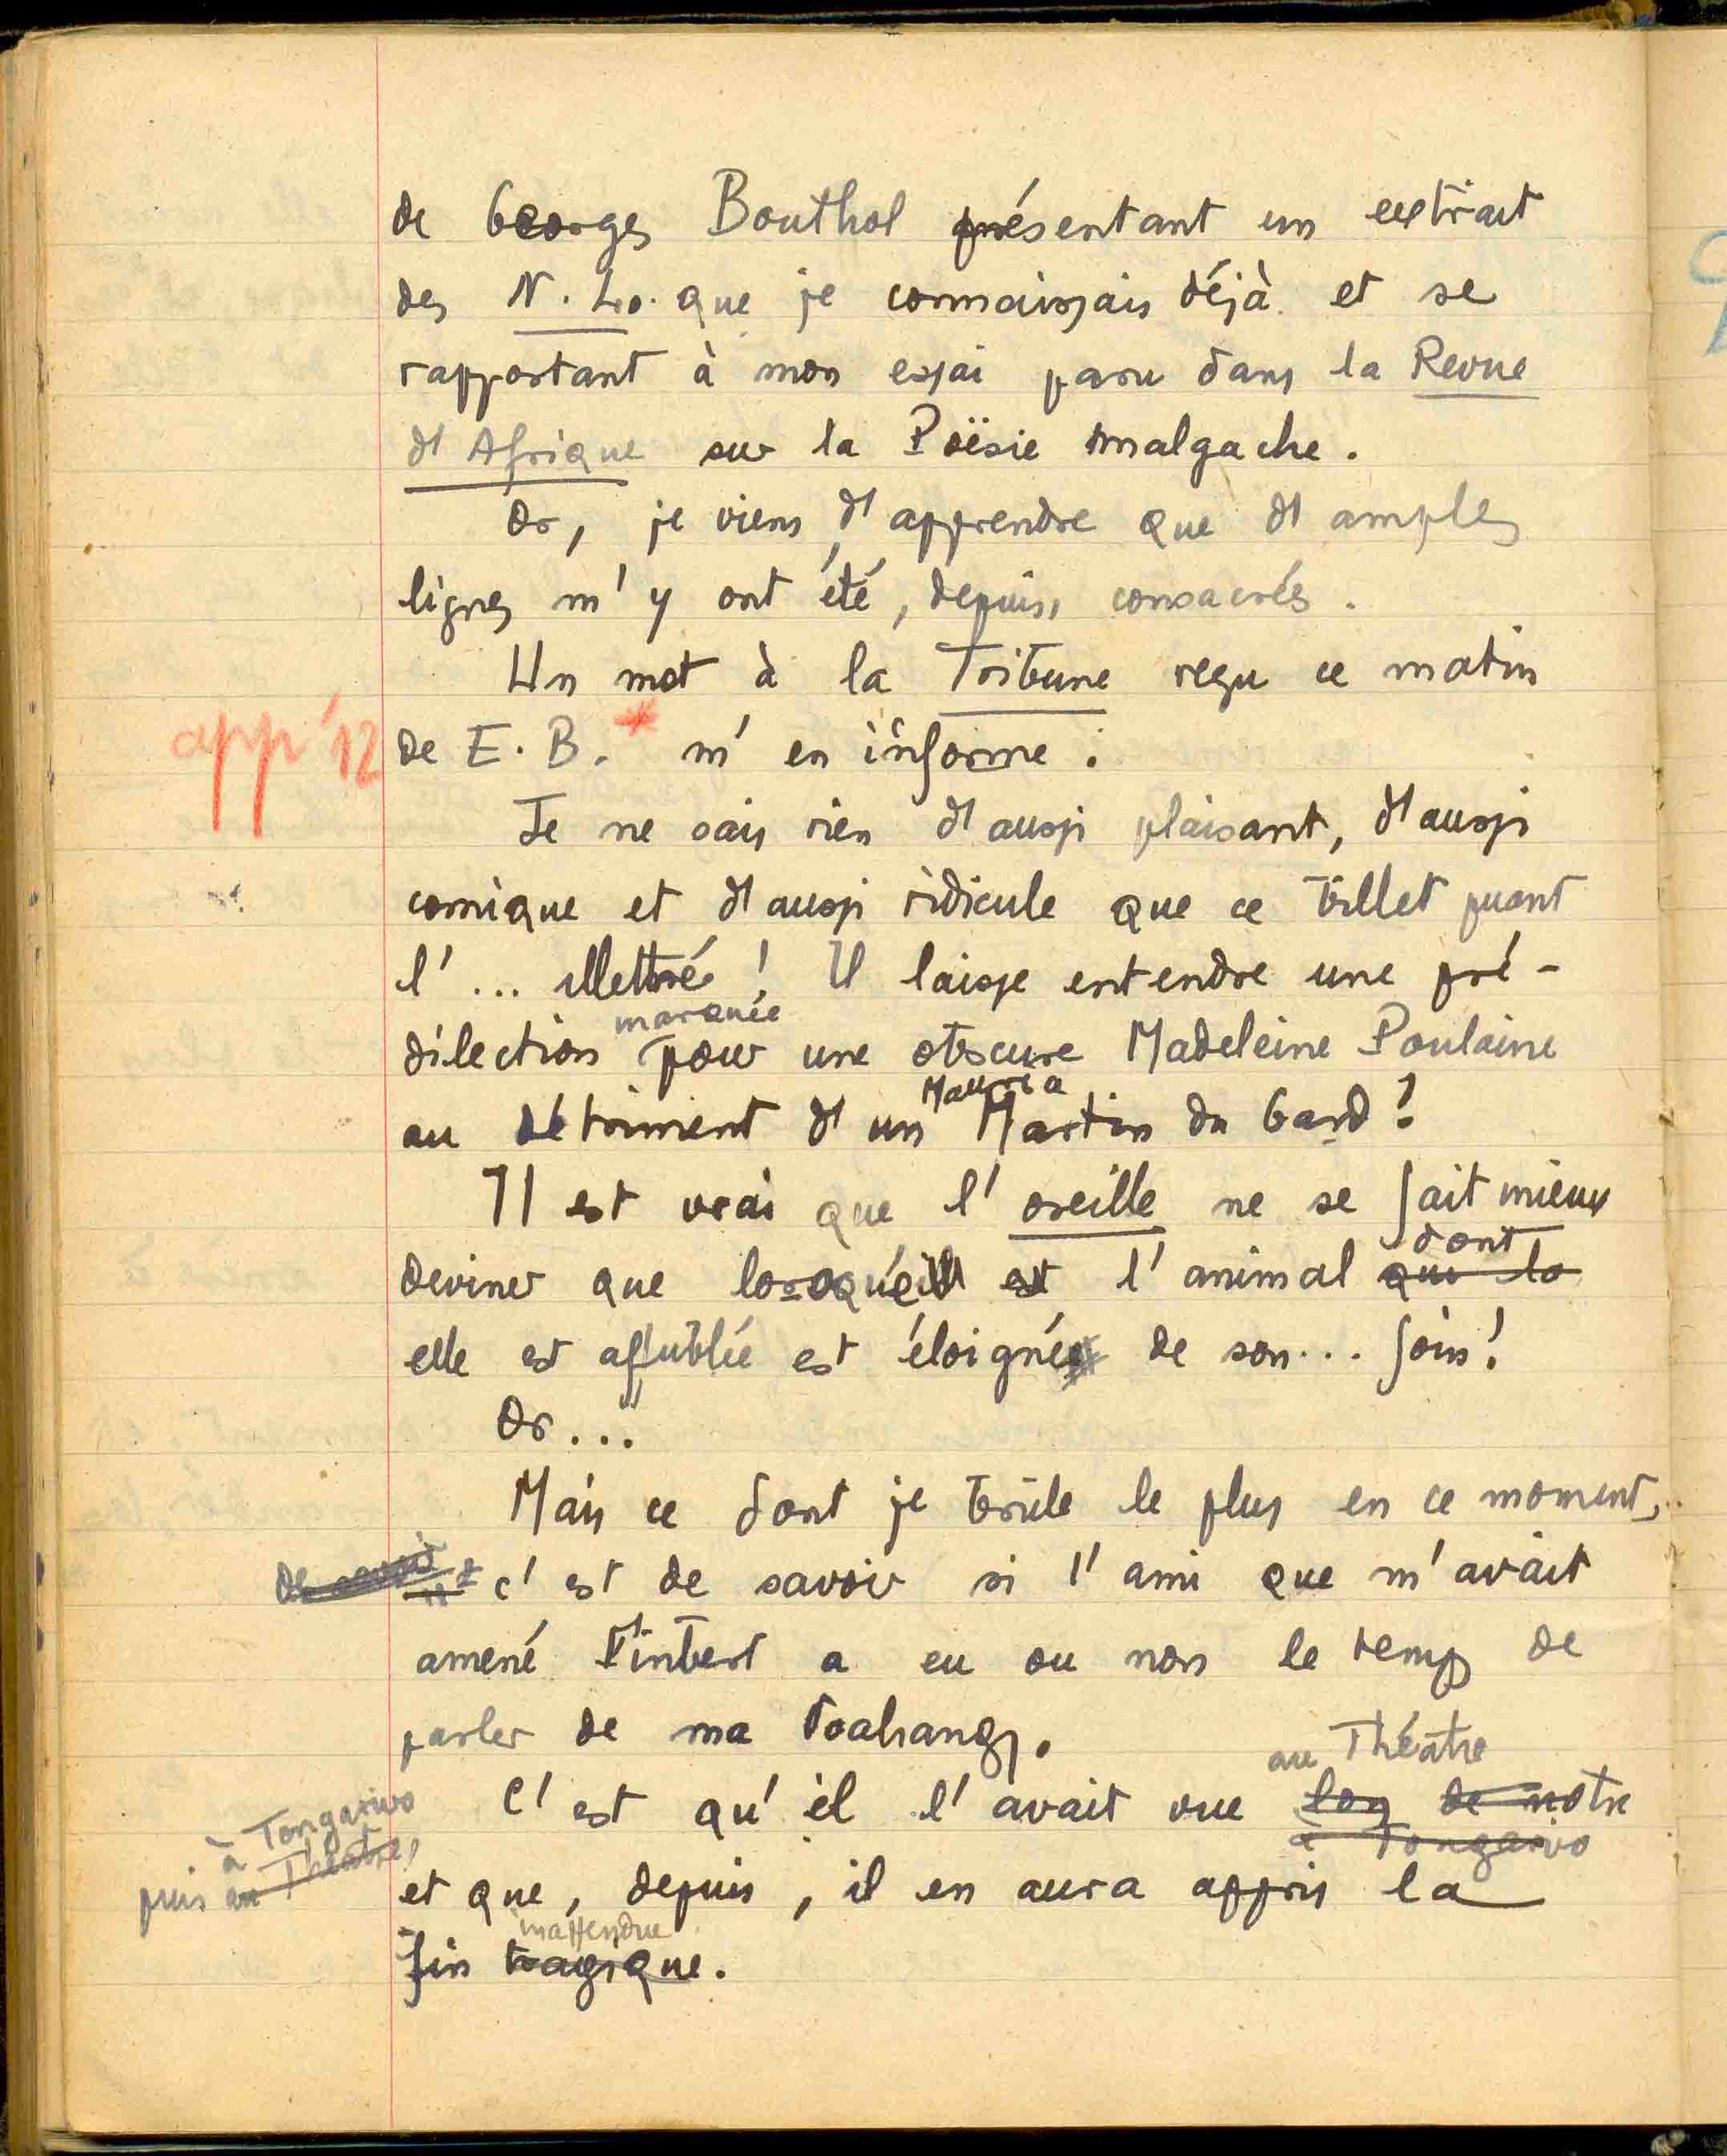 de Georges Bouthol présentant un extrait
des N. Lo. que je connaissais déjà et se
rapportant à mon essai paru dans la Revue
d'Afrique sur la Poësie malgache.
Or, je viens d'apprendre que d'amples
lignes m'y ont été, depuis, consacrés.
Un mot à la Tribune reçu ce matin
app. 12 de E. B. * m'en informe :
Je ne sais rien d'aussi plaisant, d'aussi
comique et d'aussi ridicule que ce billet puant
l'... illettré ! Il laisse entendre une pré-
marquée
dilection pour une obscure Madeleine Poulaine
au détriment d'un Martin du Gard !
Il est vrai que l'oreille ne se fait mieux
dont
deviner que lorsque l'animal que la
elle est affublée est éloigné de son... foin !
Or...
Mais ce dont je brûle le plus en ce moment,
de savoir c'est de savoir si l'ami que m'avait
amené a eu ou non le temps de
parler de ma
au Théâtre
C'est qu'il l'avait vue de notre
à Tongarivo
à Tongarivo
puis au Théâtre,
et que, depuis, il en aura appris la
inattendue
fin tragique.